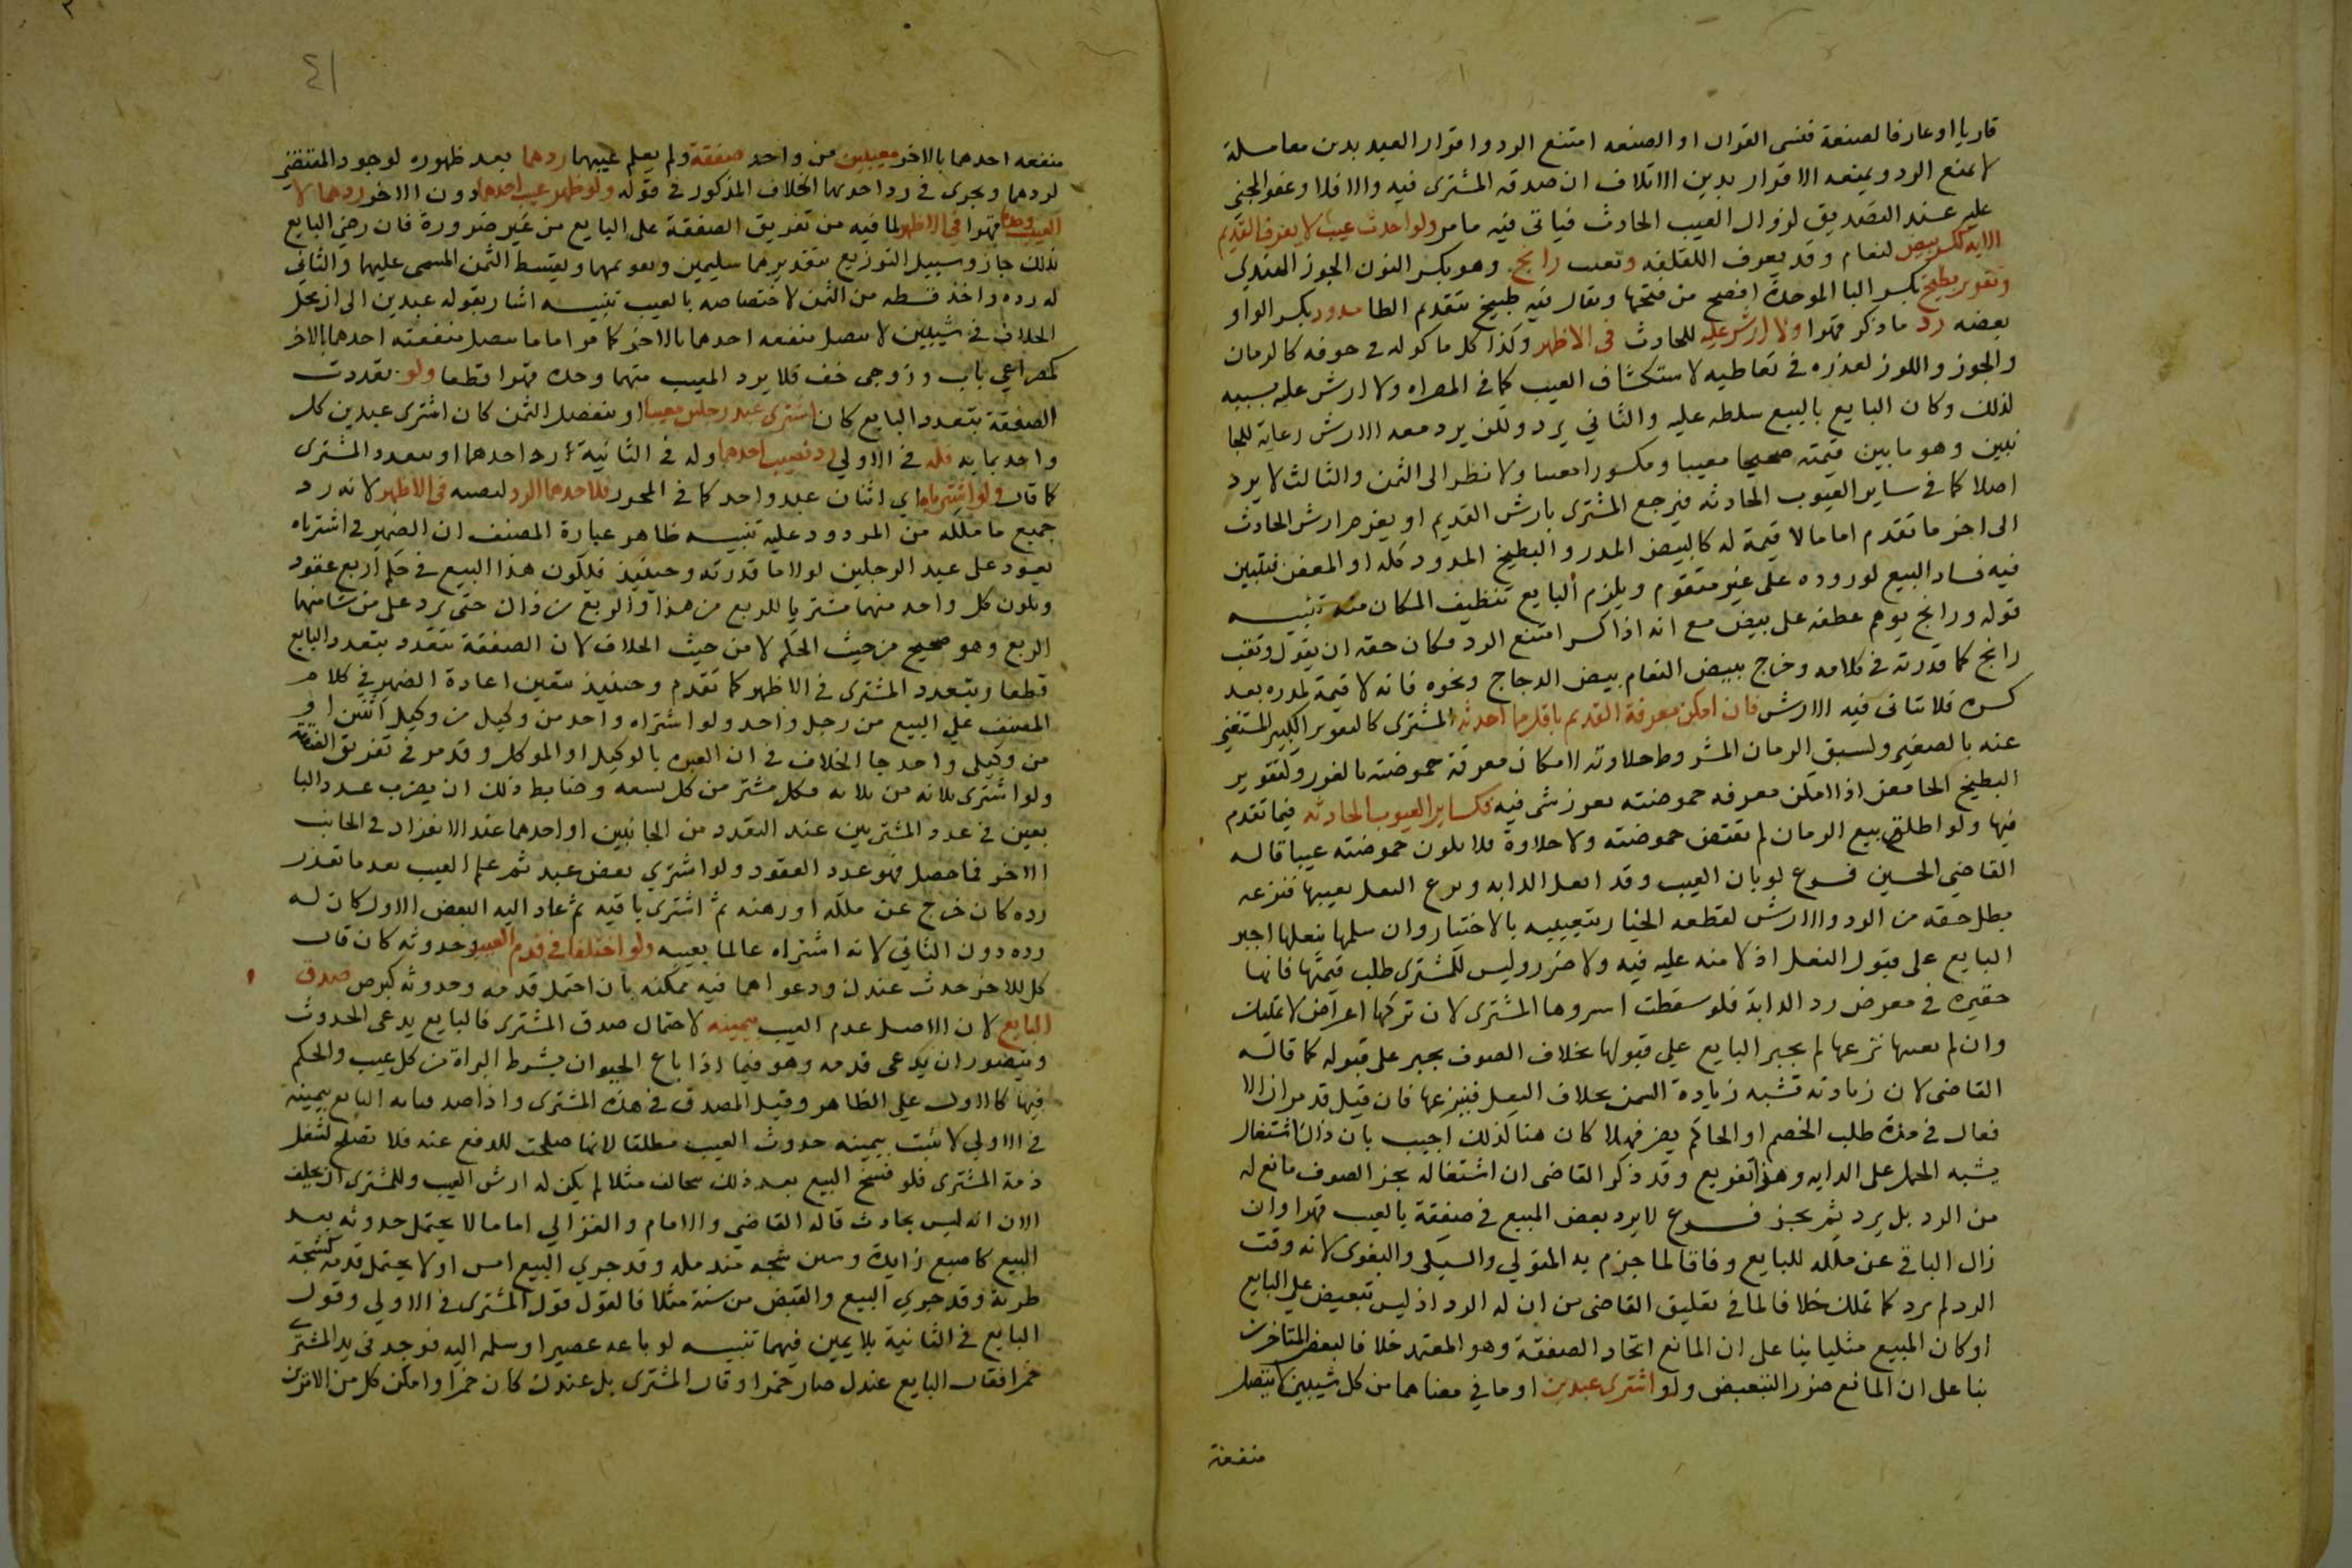 قاريا او عارفا لصنعة فنسى القران او الصنعه امتنع الرد واقرار العبد بدين معاملة
لا يمنع الرد ويمنعه الاقرار بدين الاتلاف ان صدقه المشترى فيه والا فلا وعفو المجنى
عليه عند التصديق لزوال العيب الحادث فياتى فيه ما مر ولو احدث عيبا لا يعرف القديم
الا به ككسر بيض لنعام وقد يعرف اللقلقه وتعب رانج وهو بكسر النون الجوز الهندى
وتقوير بطيخ بكسر البا الموحدة افصح من فتحها ويقال فيه طبيخ بتقديم الطا مدود بكسر الواو
بعضه رد ما ذكر قهرا ولا ارش عليه للحادث فى الاظهر وكذا كل ما كوله فى جوفه كالرمان
والجوز واللوز لعذره فى تعاطيه لاستكشاف العيب كما فى المصراه ولا ارش عليه بسببه
لذلك وكان البايع بالبيع سلطه عليه والثاني يرد ولكن يرد معه الارش رعاية للجا
نبين وهو ما بين قيمته صحيحا معيبا ومكسورا معيبا ولا نظر الى الثمن والثالث لا يرد
اصلا كما فى ساير العيوب الحادثه فيرجع المشترى بارش القديم او يغرم ارش الحادث
الى اخر ما تقدم اما ما لا قيمة له كالبيض المدر والبطيخ المدود كله او المعفن فتبين
فيه فساد البيع لوروده على غير متقوم ويلزم البايع تنظيف المكان منه تنبيه
قوله ورانج يوهم عطفه على بيض مع انه اذا كسر امتنع الرد فكان حقه ان يقول وثقب
رانج كما قدرته فى كلامه وخرج ببيض النعام بيض الدجاج ونحوه فانه لا قيمة لمدره بعد
كسره فلا يتاتى فيه الارش فان امكن معرفة القديم باقل مما احدثه المشترى كالتقوير الكبير المستغنى
عنه بالصغير ولسبق الرمان المشروط حلاوته لامكان معرفة حموضته بالغرز ولتقوير
البطيخ الحامض اذا امكن معرفه حموضته بغرز شى فيه فكساير العيوب الحادثه فيما تقدم
فيها ولو اطلق بيع الرمان لم تقتض حموضته ولا حلاوة فلا يكون حموضته عيبا قاله
القاضي الحسين فرع لو بان العيب وقد انعل الدابه ونزع النعل يعيبها فنزعه
بطل حقه من الرد والارش لقطعه الخيار بتعييبه بالاختيار وان سلمها بنعلها اجبر
البايع على قبول النعل اذ لا منه عليه فيه ولا ضرر وليس للمشترى طلب قيمتها فانها
حقيره فى معرض رد الدابة فلو سقطت استردها المشترى لان تركها اعراض لا تمليك
وان لم يعيبها نزعها لم يجبر البايع على قبولها بخلاف الصوف يجبر على قبوله كما قاله
القاضى لان زيادته تشبه زيادة السمن بخلاف النعل فينزعها فان قيل قد مر ان الا
نعال فى مدة طلب الخصم او الحاكم يضر فهلا كان هنا لذلك اجيب بان ذلك اشتغال
يشبه الحمل على الدابه وهذا تفريع وقد ذكر القاضى ان اشتغاله بجز الصوف مانع له
من الرد بل يرد ثم يجز فرع لا يرد بعض المبيع فى صفقة بالعيب قهرا وان
زال الباقى عن ملكه للبايع وفاقا لما جزم به المتولي والسبكى والبغوى لانه وقت
الرد لم يرد كما تملك خلافا لما فى تعليق القاضى من ان له الرد اذ ليس تبعيض على البايع
او كان المبيع مثليا بنا على ان المانع اتحاد الصفقة وهو المعتمد خلافا لبعض المتاخرين
بنا على ان المانع ضرر التبعيض ولو اشترى عبدين او ما في معناهما من كل شيين لا تتصل
منفعة
٤١
منفعه احدهما بالاخر معيبين من واحد صفقة ولم يعلم عيبهما ردهما بعد ظهوره لوجود المقتضى
لردهما ويجرى فى رد احدهما الخلاف المذكور فى قوله ولو ظهر عيب احدهما دون الاخر ردهما لا
المعيب وحده قهرا فى الاظهر لما فيه من تفريق الصفقة على البايع من غير ضرورة فان رضى البايع
بذلك جاز وسبيل التوزيع بتقديرهما سليمين وتقويمهما ويقسط الثمن المسمى عليهما والثانى
له رده واخذ قسطه من الثمن لاختصاصه بالعيب تنبيه اشار بقوله عبدين الى ان محل
الخلاف فى شيين لا تتصل منفعه احدهما بالاخر كما مر اما ما تتصل منفعته احدهما بالاخر
كمصراعي باب وزوجى خف فلا يرد المعيب منهما وحده قهرا قطعا ولو تعددت
الصفقة بتعدد البايع كان اشترى عبد رجلين معيبا او بتفصيل الثمن كان اشترى عبدين كل
واحد بمايه فله فى الاولى رد نصيب احدهما وله فى الثانية رد احدهما او بتعدد المشترى
كما قال ولو اشترياه اي اثنان عبد واحد كما فى المحرر فلاحدهما الرد لنصيبه فى الاظهر لانه رد
جميع ما ملكه من المردود عليه تنبيه ظاهر عبارة المصنف ان الضمير فى اشترياه
يعود على عبد الرجلين لولا ما قدرته وحينئذ فيكون هذا البيع فى حكم اربع عقود
ويكون كل واحد منهما مشتريا للربع من هذا والربع من ذاك حتى يرد على من شا منهما
الربع وهو صحيح من حيث الحكم لا من حيث الخلاف لان الصفقة تتعدد بتعدد البايع
قطعا وبتعدد المشترى فى الاظهر كما تقدم وحينئذ يتعين اعادة الضمير فى كلام
المصنف على البيع من رجل واحد ولو اشتراه واحد من وكيل من وكيل اثنين او
من وكيلي واحد جا الخلاف فى ان العبره بالوكيل او الموكل وقد مر فى تفريق الصفقة
ولو اشترى ثلاثه من ثلاثه فكل مشتر من كل تسعه وضابط ذلك ان يضرب عدد البا
يعين فى عدد المشتريين عند التعدد من الجانبين او احدهما عند الانفراد فى الجانب
الاخر فما حصل فهو عدد العقود ولو اشترى بعض عبد ثم علم العيب بعد ما تعذر
رده كان خرج عن ملكه او رهنه ثم اشترى باقيه ثم عاد اليه البعض الاول كان له
رده دون الثانى لانه اشتراه عالما بعيبه ولو اختلفا فى قدم العيب وحدوثه كان قال
كل للاخر حدث عندك ودعواهما فيه ممكنه بان احتمل قدمه وحدوثه كبرص صدق
البايع لان الاصل عدم العيب بيمينه لاحتمال صدق المشترى فالبايع يدعى الحدوث
ويتصور ان يدعى قدمه وهو فيما اذا باع الحيوان بشرط البراة من كل عيب والحكم
فيها كالاول على الظاهر وقيل المصدق فى هذه المشترى واذا صدقنا البايع بيمينه
فى الاولى لا تثبت بيمينه حدوث العيب مطلقا لانها صلحت للدفع عنه فلا تصلح لشغل
ذمة المشترى فلو فسخ البيع بعد ذلك بتحالف مثلا لم يكن له ارش العيب وللمشترى ان يحلف
الان انه ليس بحادث قاله القاضي والامام والغزالي اما ما لا يحتمل حدوثه بعد
البيع كاصبع زايدة وشين شجه مندمله وقد جرى البيع امس او لا يحتمل قدمه كشجة
طرية وقد جرى البيع والقبض من سنة مثلا فالقول قول المشترى فى الاولى وقول
البايع فى الثانية بلا يمين فيهما تنبيه لو باعه عصيرا وسلمه اليه فوجد فى يد المشترى
خمرا فقال البايع عندك صار خمرا وقال المشترى بل عندك كان خمرا وامكن كل من الامرين